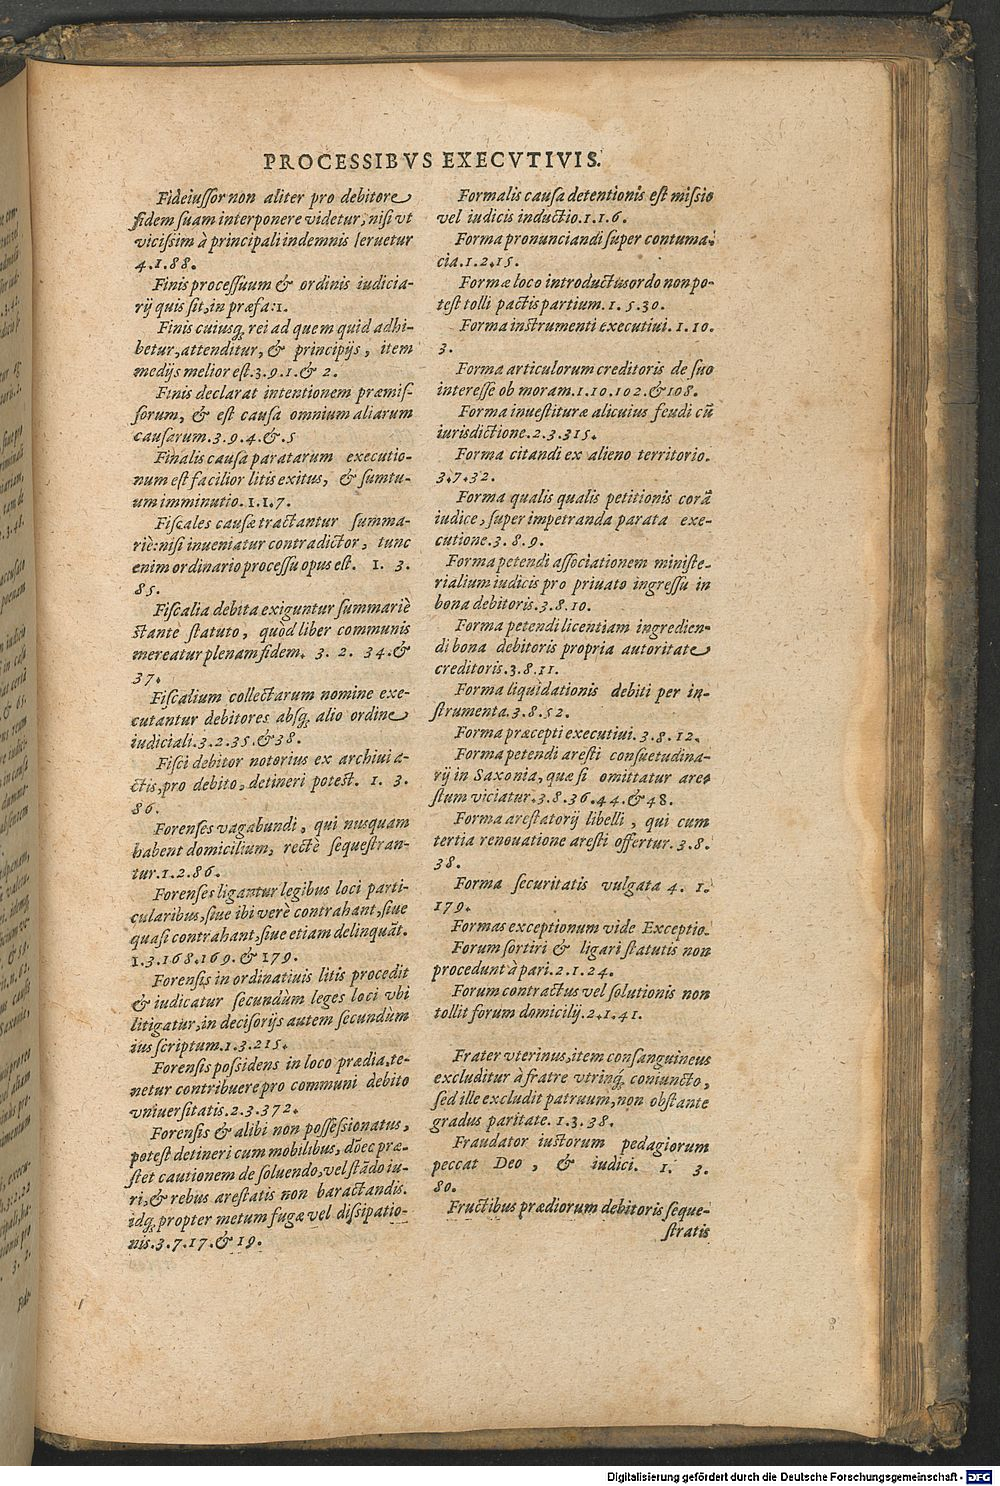 PROCESSIBVS EXECVTIVIS.
Fideiussor non aliter pro debitore
fidem suam interponere videtur, nisi vt
vicissim à principali indemnis seruetur
4.1.88.
Finis processuum & ordinis iudicia-
rij quis sit, in præfa: 1.
Finis cuiusq; rei ad quem quid adhi-
betur, attenditur, & principijs, item
medijs melior est. 3.9.1. & 2.
Finis declarat intentionem præmis-
sorum, & est causa omnium aliarum
causarum. 3.9.4. &. 5
Finalis causa paratarum executio-
num est facilior litis exitus, & sumtu-
um imminutio. 1.1.7.
Fiscales causæ tractantur summa-
riè: nisi inueniatur contradictor, tunc
enim ordinario processu opus est. 1. 3.
85.
Fiscalia debita exiguntur summariè
stante statuto, quòd liber communis
mereatur plenam fidem. 3. 2. 34. &
37.
Fiscalium collectarum nomine exe-
cutantur debitores absq; alio ordine
iudiciali. 3.2.35. & 38.
Fisci debitor notorius ex archiui a-
ctis, pro debito, detineri potest. 1. 3.
86.
Forenses vagabundi, qui nusquam
habent domicilium, rectè sequestran-
tur. 1.2.86.
Forenses ligantur legibus loci parti-
cularibus, siue ibi verè contrahant, siue
quasi contrahant, siue etiam delinquāt.
1.3.168.169. & 179.
Forensis in ordinatiuis litis procedit
& iudicatur secundùm leges loci vbi
litigatur, in decisorijs autem secundùm
ius scriptum. 1.3.215.
Forensis possidens in loco prædia, te-
netur contribuere pro communi debito
vniuersitatis. 2.3.372.
Forensis & alibi non possessionatus,
potest detineri cum mobilibus, dōec præ-
stet cautionem de soluendo, vel stādo iu-
ri, & rebus arestatis non baractandis.
idq; propter metum fugæ vel dissipatio-
nis. 3.7.17. & 19.
Formalis causa detentionis est missio
vel iudicis inductio. 1.1.6.
Forma pronunciandi super contuma-
cia. 1.2.15.
Formæ loco introductus ordo non po-
test tolli pactis partium. 1. 5.30.
Forma instrumenti executiui. 1. 10.
3.
Forma articulorum creditoris de suo
interesse ob moram. 1.10.102. & 108.
Forma inuestituræ alicuius feudi cū
iurisdictione. 2.3.315.
Forma citandi ex alieno territorio.
3.7.32.
Forma qualis qualis petitionis corā
iudice, super impetranda parata exe-
cutione. 3.8.9.
Forma petendi associationem ministe-
rialium iudicis pro priuato ingressu in
bona debitoris. 3.8.10.
Forma petendi licentiam ingredien-
di bona debitoris propria autoritate
creditoris. 3.8.11.
Forma liquidationis debiti per in-
strumenta. 3.8.52.
Forma præcepti executiui. 3.8.12.
Forma petendi aresti consuetudina-
rij in Saxonia, quæ si omittatur are-
stum viciatur. 3.8.36.44. & 48.
Forma arestatorij libelli, qui cum
tertia renouatione aresti offertur. 3.8.
38.
Forma securitatis vulgata 4. 1.
179.
Formas exceptionum vide Exceptio.
Forum sortiri & ligari statutis non
procedunt à pari. 2.1.24.
Forum contractus vel solutionis non
tollit forum domicilij. 2.1.41.
Frater vterinus, item consanguineus
excluditur à fratre vtrinq; coniuncto,
sed ille excludit patruum, non obstante
gradus paritate. 1.3.38.
Fraudator iustorum pedagiorum
peccat Deo, & iudici. 1. 3.
80.
Fructibus prædiorum debitoris seque-
stratis
Digitalisierung gefördert durch die Deutsche Forschungsgemeinschaft - DFG